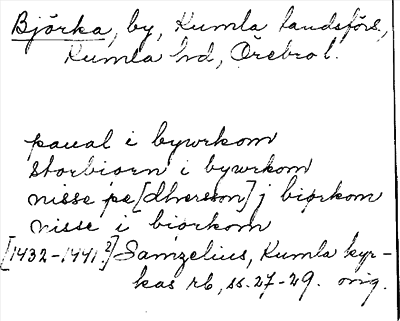 Björka, by, Kumla landsförs.,
Kumla hd, Örebro l.
paual i bywrkom
storbiorn i bywrkom
nisse pe[dhersson] j biorkom
nisse i biorkom
[1432-1441.?] Samzelius, Kumla kyr-
kas rb, ss. 27-29. orig.